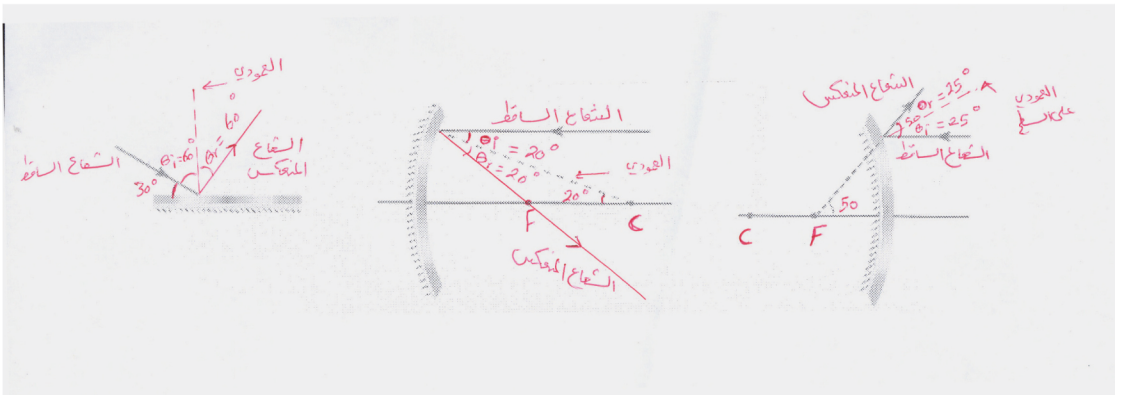 العمودي
الشعاع الساقط
30°
θi=60°
θr = 60°
الشعاع
المنعكس
الشعاع الساقط
θi = 20°
θr = 20°
العمودي
20°
F
C
الشعاع المنعكس
الشعاع المنعكس
θr = 25°
50
θi = 25°
العمودي
على السطح
الشعاع الساقط
50
C
F